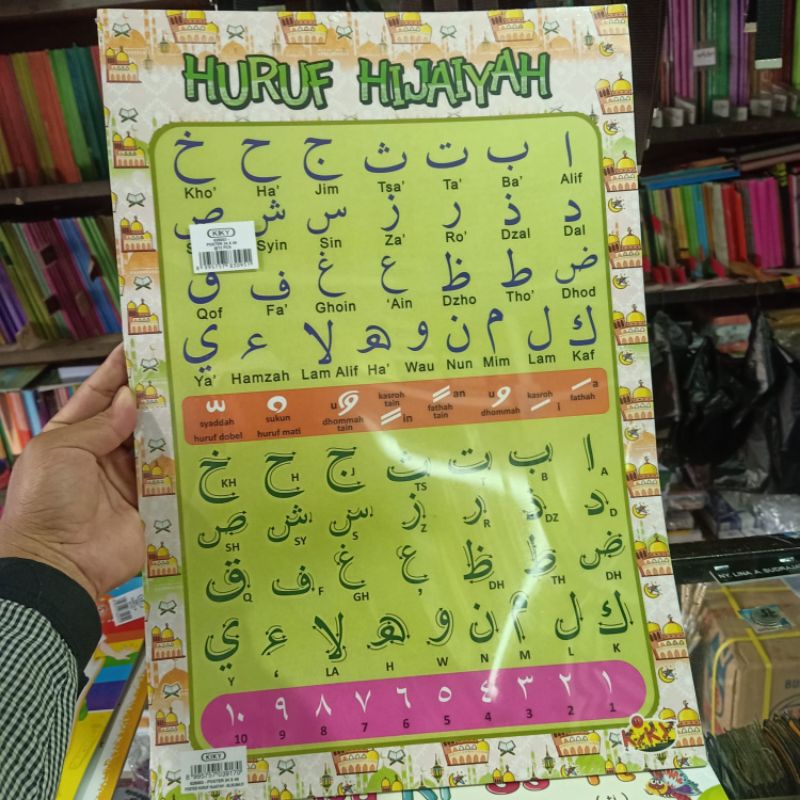 HURUF HIJAIYAH
ا ب ت ث ج ح خ
Kho' Ha' Jim Tsa' Ta' Ba' Alif
د ذ ر ز س ش ص
Syin Sin Za' Ro' Dzal Dal
ض ط ظ ع غ ف ق
Qof Fa' Ghoin 'Ain Dzho Tho' Dhod
ك ل م ن و ه لا ء ي
Ya' Hamzah Lam Alif Ha' Wau Nun Mim Lam Kaf
KIKY
syaddah
huruf dobel
sukun
huruf mati
u
dhommah
tain
kasroh
tain
in
an
fathah
tain
u
dhommah
kasroh
i
a
fathah
ا ب ت ث ج ح خ
KH H J TS T B A
د ذ ر ز س ش ص
SH SY S Z R DZ D
ض ط ظ ع غ ف ق
Q F GH ' DH TH DH
ك ل م ن و ه لا ء ي
Y ' LA H W N M L K
١ ٢ ٣ ٤ ٥ ٦ ٧ ٨ ٩ ١٠
10 9 8 7 6 5 4 3 2 1
KIKY
KIKY